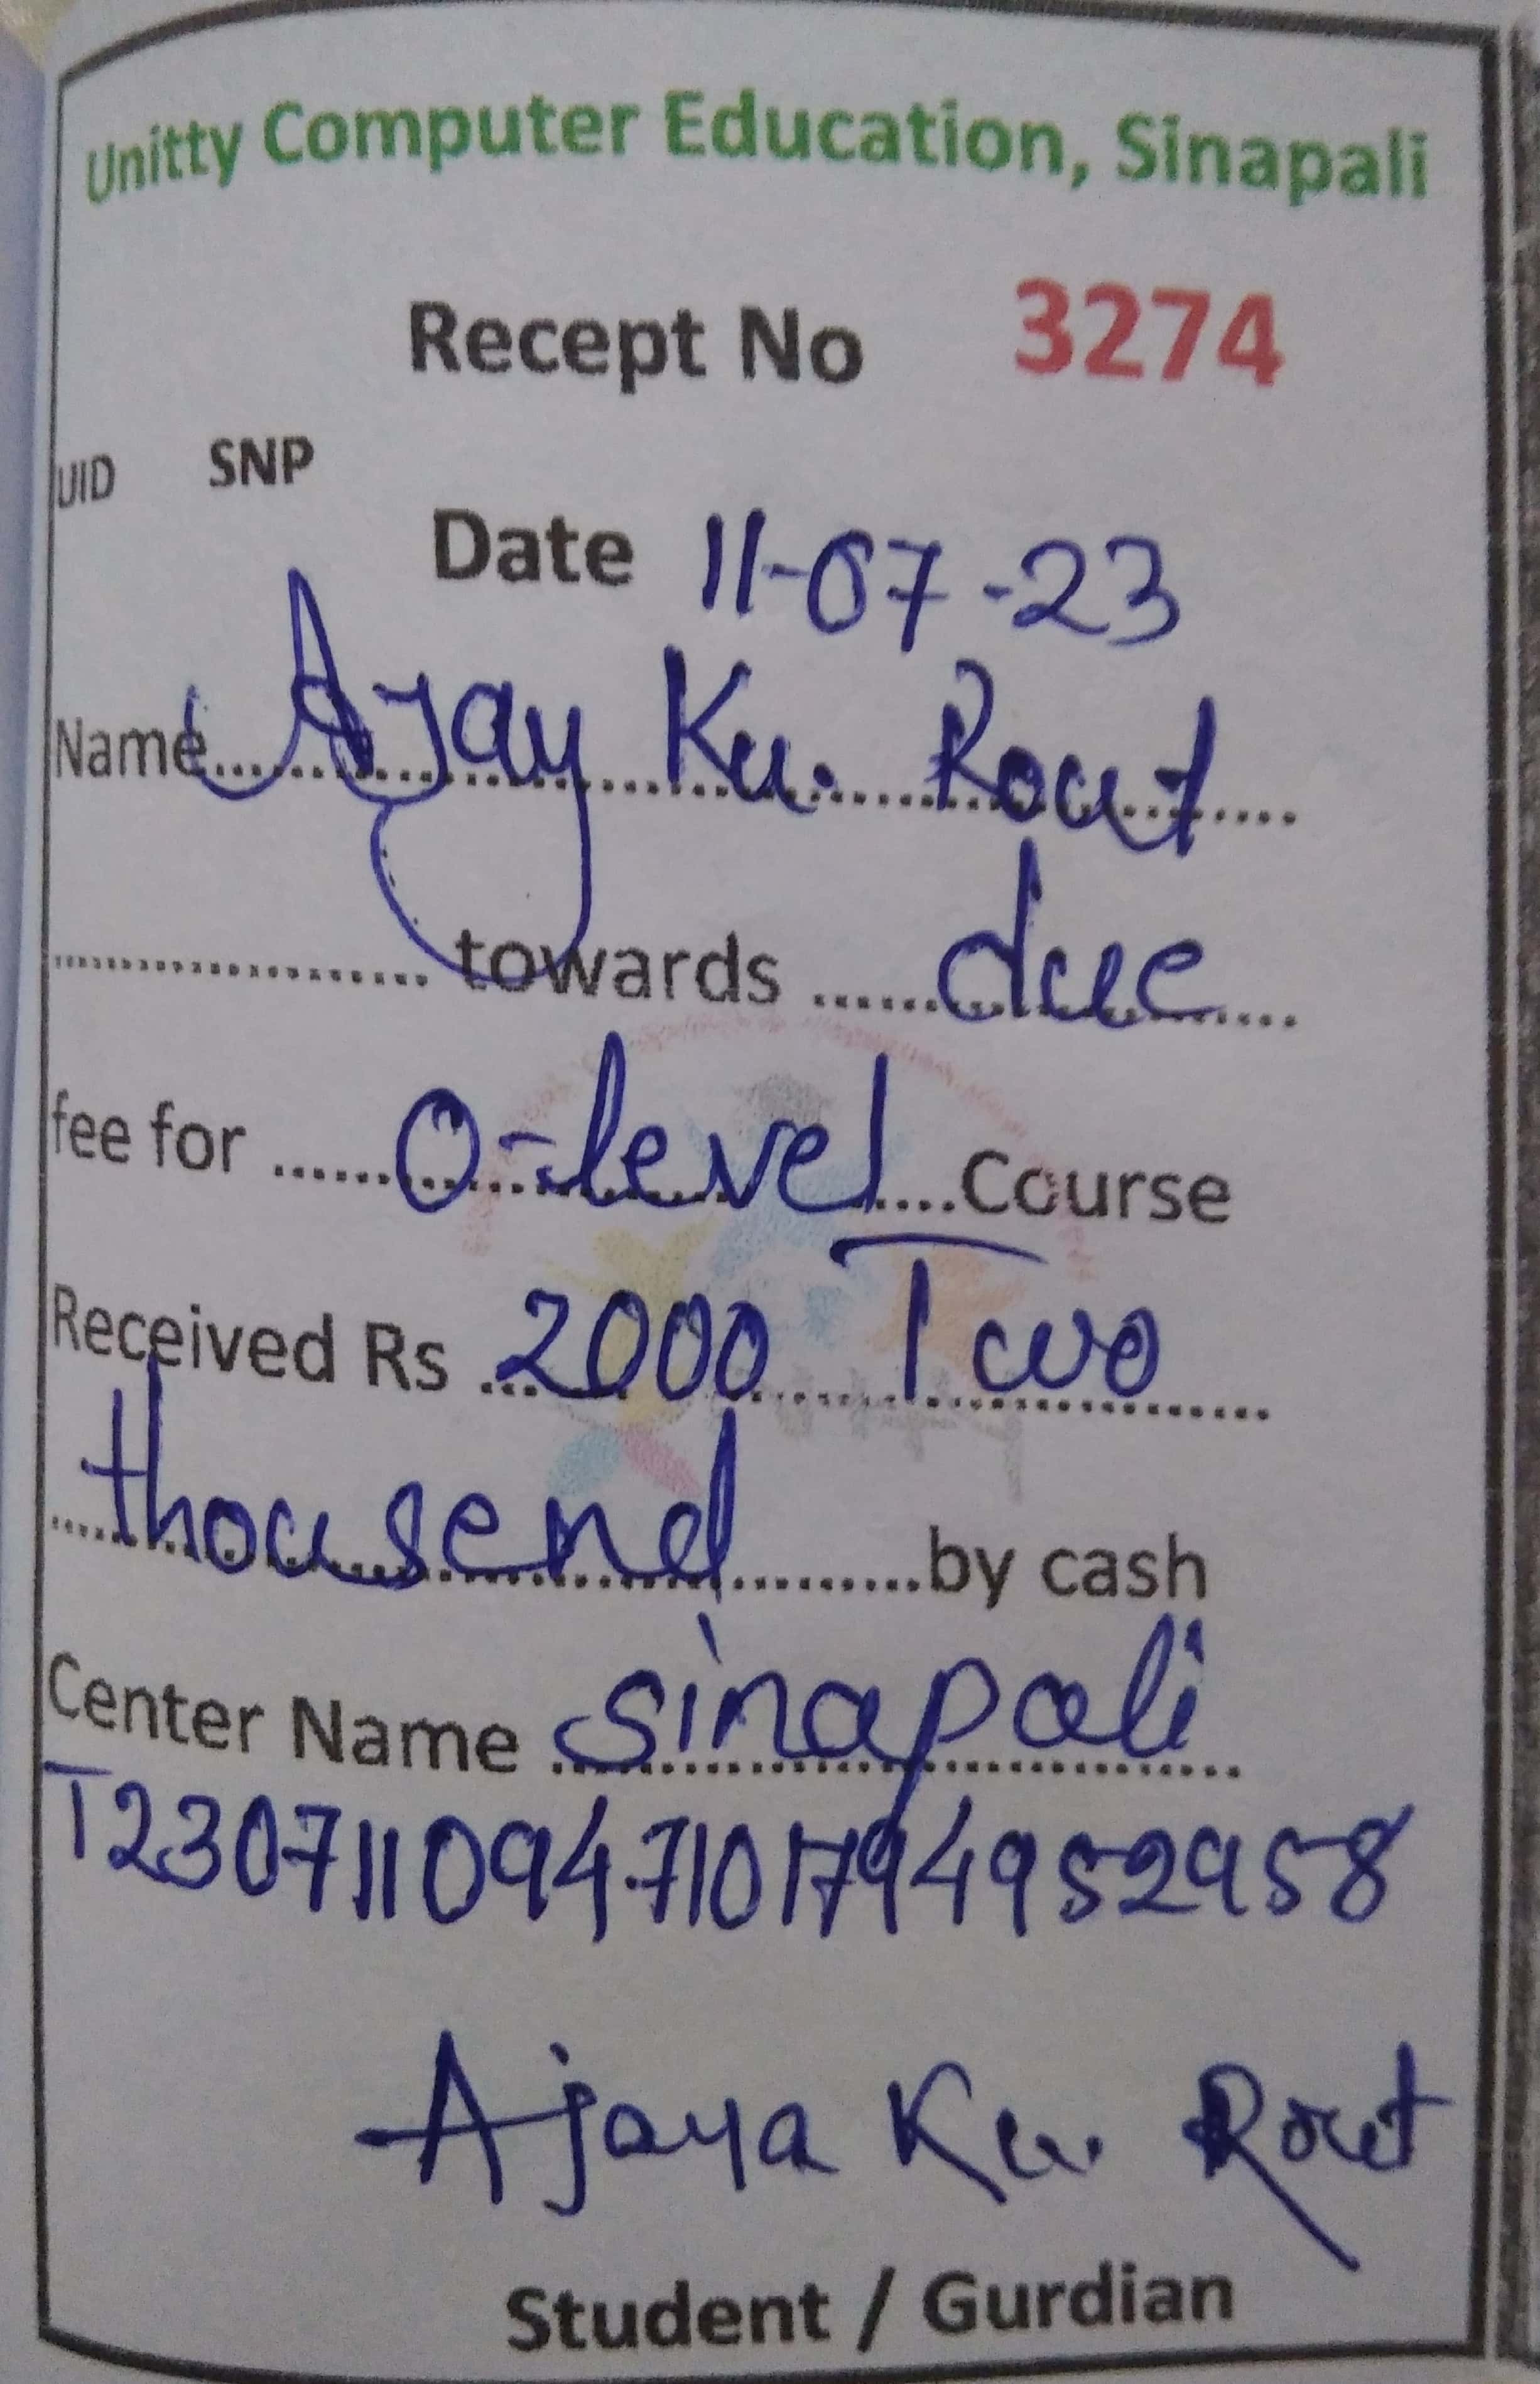 Unitty Computer Education, Sinapali
Recept No 3274
UID SNP
Date 11-07-23
Name Ajay Ku. Rout
towards due
fee for O-level Course
Received Rs 2000 Two
thousend by cash
Center Name sinapali
T2307110947101794952958
Ajaya Ku. Rout
Student / Gurdian